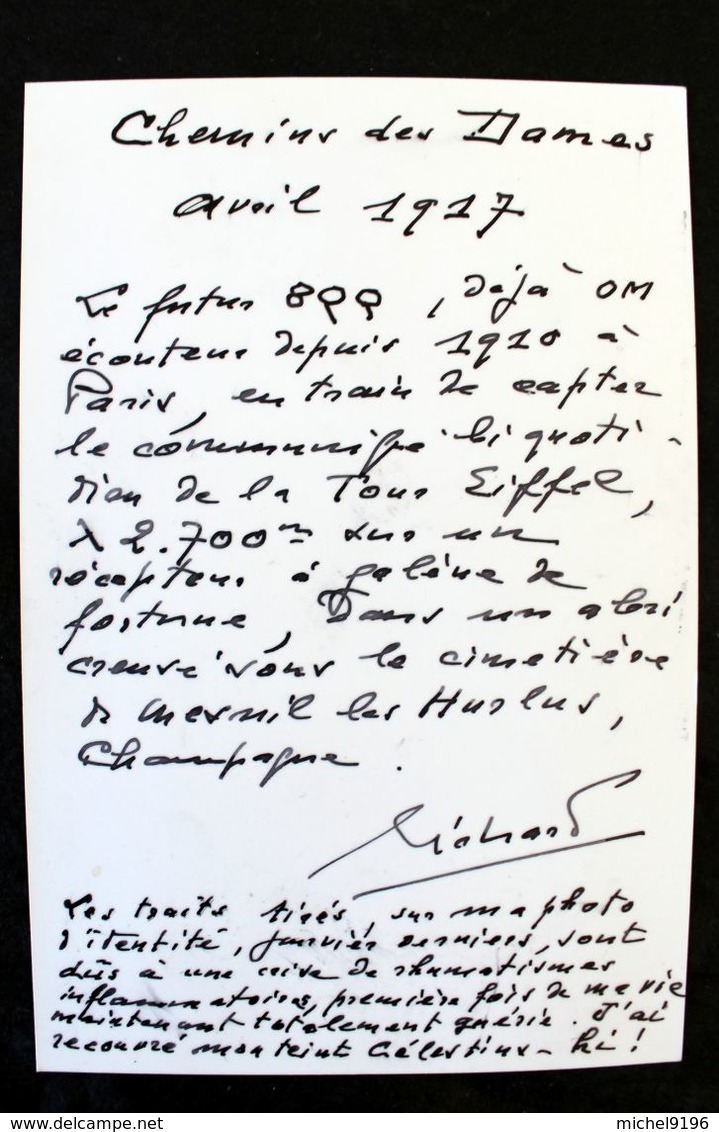 Chemins des Dames
avril 1917
Le futur 8QQ, déjà OM
écouteur depuis 1910 à
Paris, en train de capter
le communiqué biquoti-
dien de la Tour Eiffel,
λ 2.700m sur un
récepteur à galène de
fortune, dans un abri
creusé sous le cimetière
de Mesnil les Hurlus,
Champagne.
Les traits tirés, sur ma photo
d'identité, janvier derniers, sont
dûs à une crise de rhumatismes
inflammatoires, première fois de ma vie
maintenant totalement guérie. J'ai
recouvré mon teint Célestins - hi!
delcampe.net
michel9196